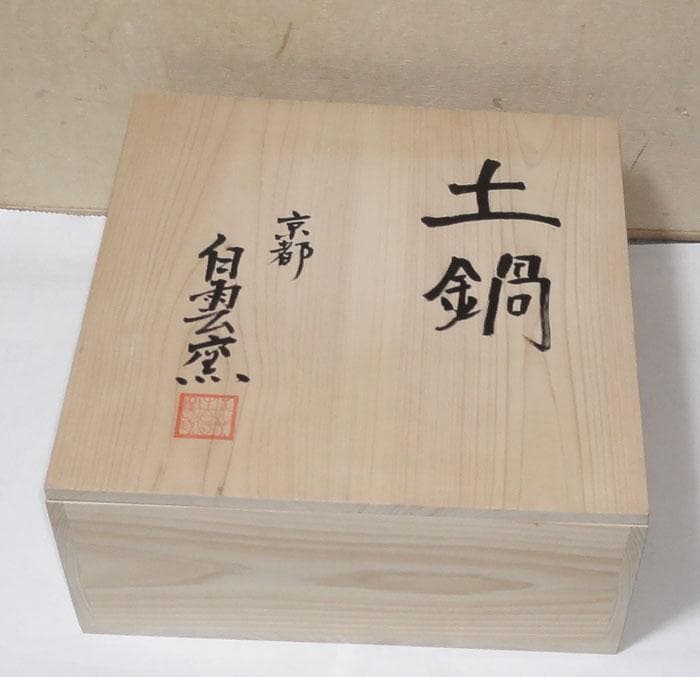 土鍋
京都
白雲窯